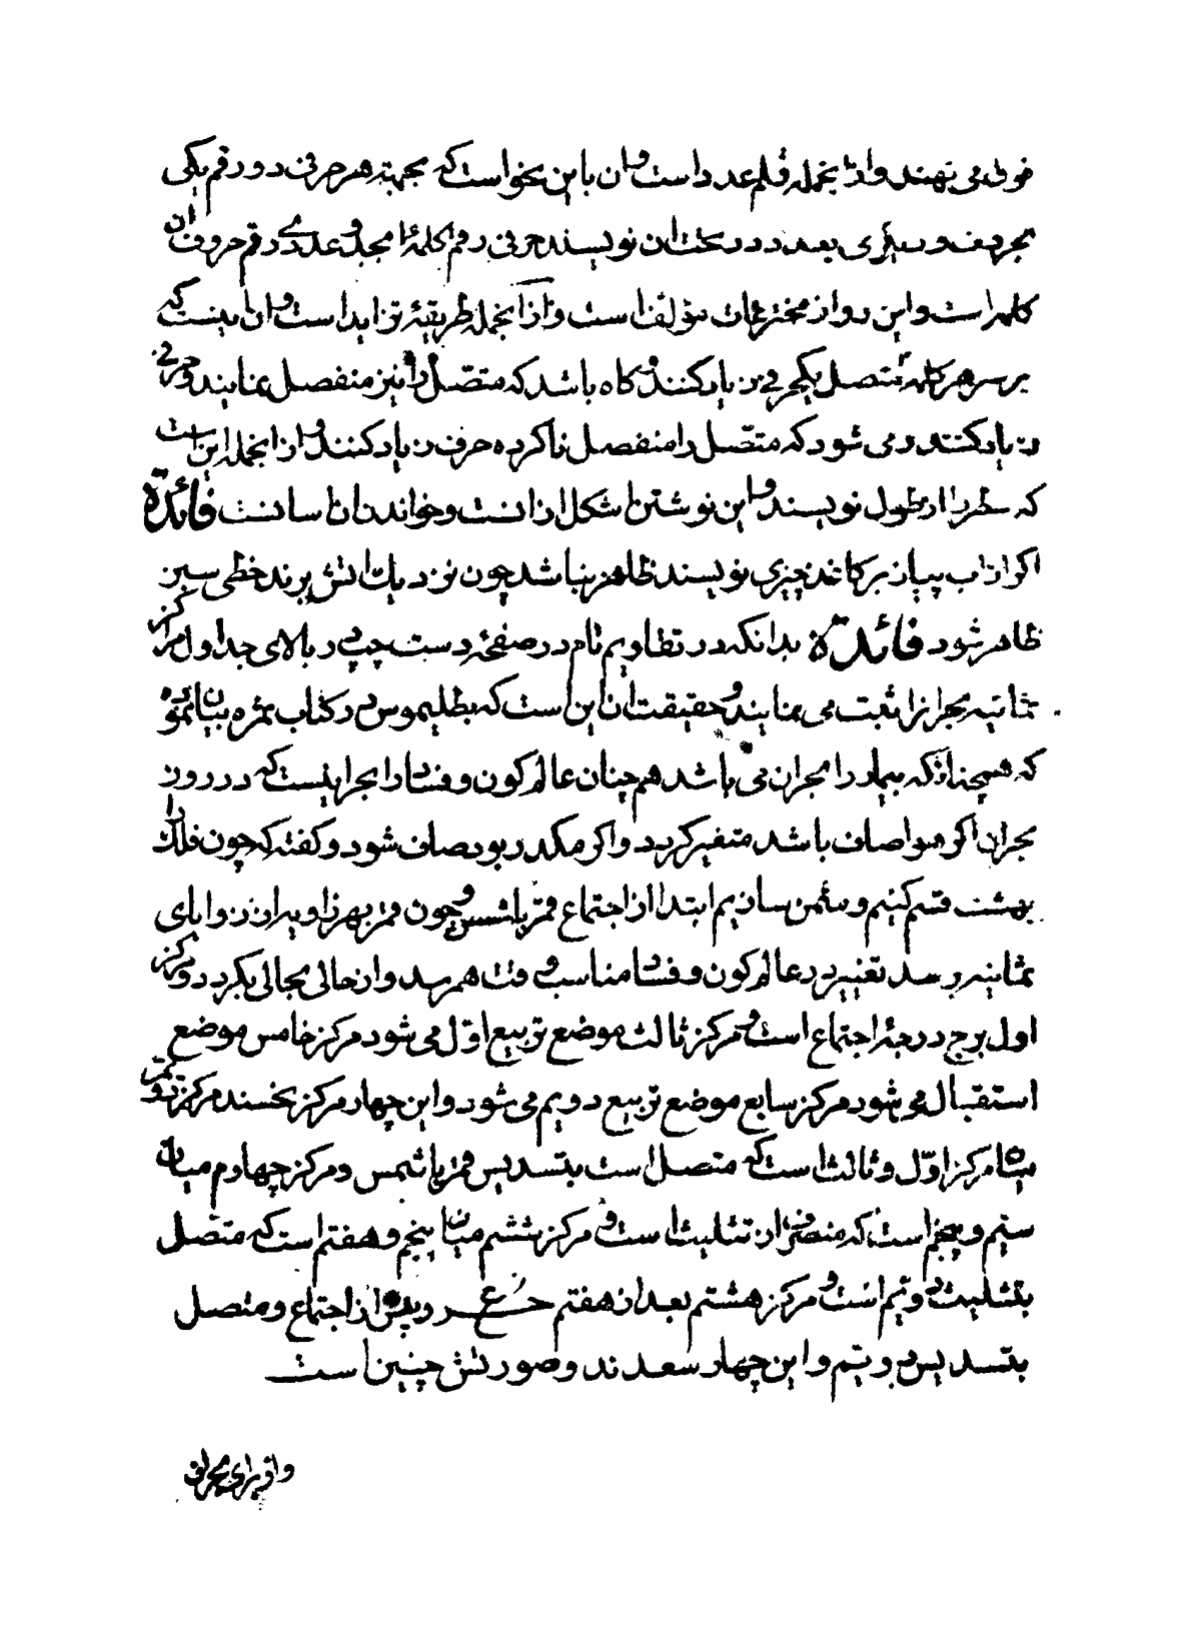 فوق می نهند وازانجمله قلم عدد است و آن باین نحو است که بجهة هر حرفی دو رقم یکی
بجر دهند و سطری بعد در تحت آن نویسند حرفی رقم کلمهٔ ابجد و عددی رقم حروف آن
کلمه است و این دو از مخترعات مؤلف است و ازانجمله طریقهٔ تزاید است و آن اینست که
بر سر هر کلمه متصل یکحرفی زیاد کنند و گاه باشد که متصل را نیز منفصل نمایند و حرفی
زیاد کنند و می شود که متصل را منفصل ناکرده حرف زیاد کنند و ازانجمله این است
که سطر را از طول نویسند و این نوشتن اشکل ازانست و خواندن آن اسانست فائدة
اکر از اب پیاز بر کاغذ چیزی نویسند ظاهر نباشد چون نزدیك اتش برند خطی سبز
ظاهر شود فائدة بدانکه در تقاویم تام در صفحهٔ دست چپ در بالای جداول مراکز
ثمانیه بحرانرا ثبت می نمایند و حقیقت آن این است که بطلیموس در کتاب ثمره بیان نموده
که همچنانکه بیمار را بحران می باشد همچنان عالم کون و فساد را بحرانیست که در روز
بحران اکر هوا صاف باشد متغیر کردد و اکر مکدر بود صاف شود و کفته که چون فلك را
بهشت قسم کنیم و مثمن سازیم ابتدا از اجتماع قمر با شمس و چون قمر بهر زاویه ازان زوایای
ثمانیه رسد تغییر در عالم کون و فساد مناسب وقت همرسد و از حالی بحالی بکردد و مرکز
اول برج درجهٔ اجتماع است و مرکز ثالث موضع تربیع اول می شود مرکز خامس موضع
استقبال می شود مرکز سابع موضع تربیع دویم می شود و این چهار مرکز نحسند مرکز دوم
میان مرکز اول و ثالث است که متصل است بتسدیس قمر با شمس و مرکز چهارم میان
سیم و پنجم است که منصرف از ان تثلیث است و مرکز ششم میان پنجم و هفتم است که متصل
بتثلیث دویم است و مرکز هشتم بعد از هفتم و پیش از اجتماع و متصل
بتسدیس دویم و این چهار سعدند و صورتش چنین است